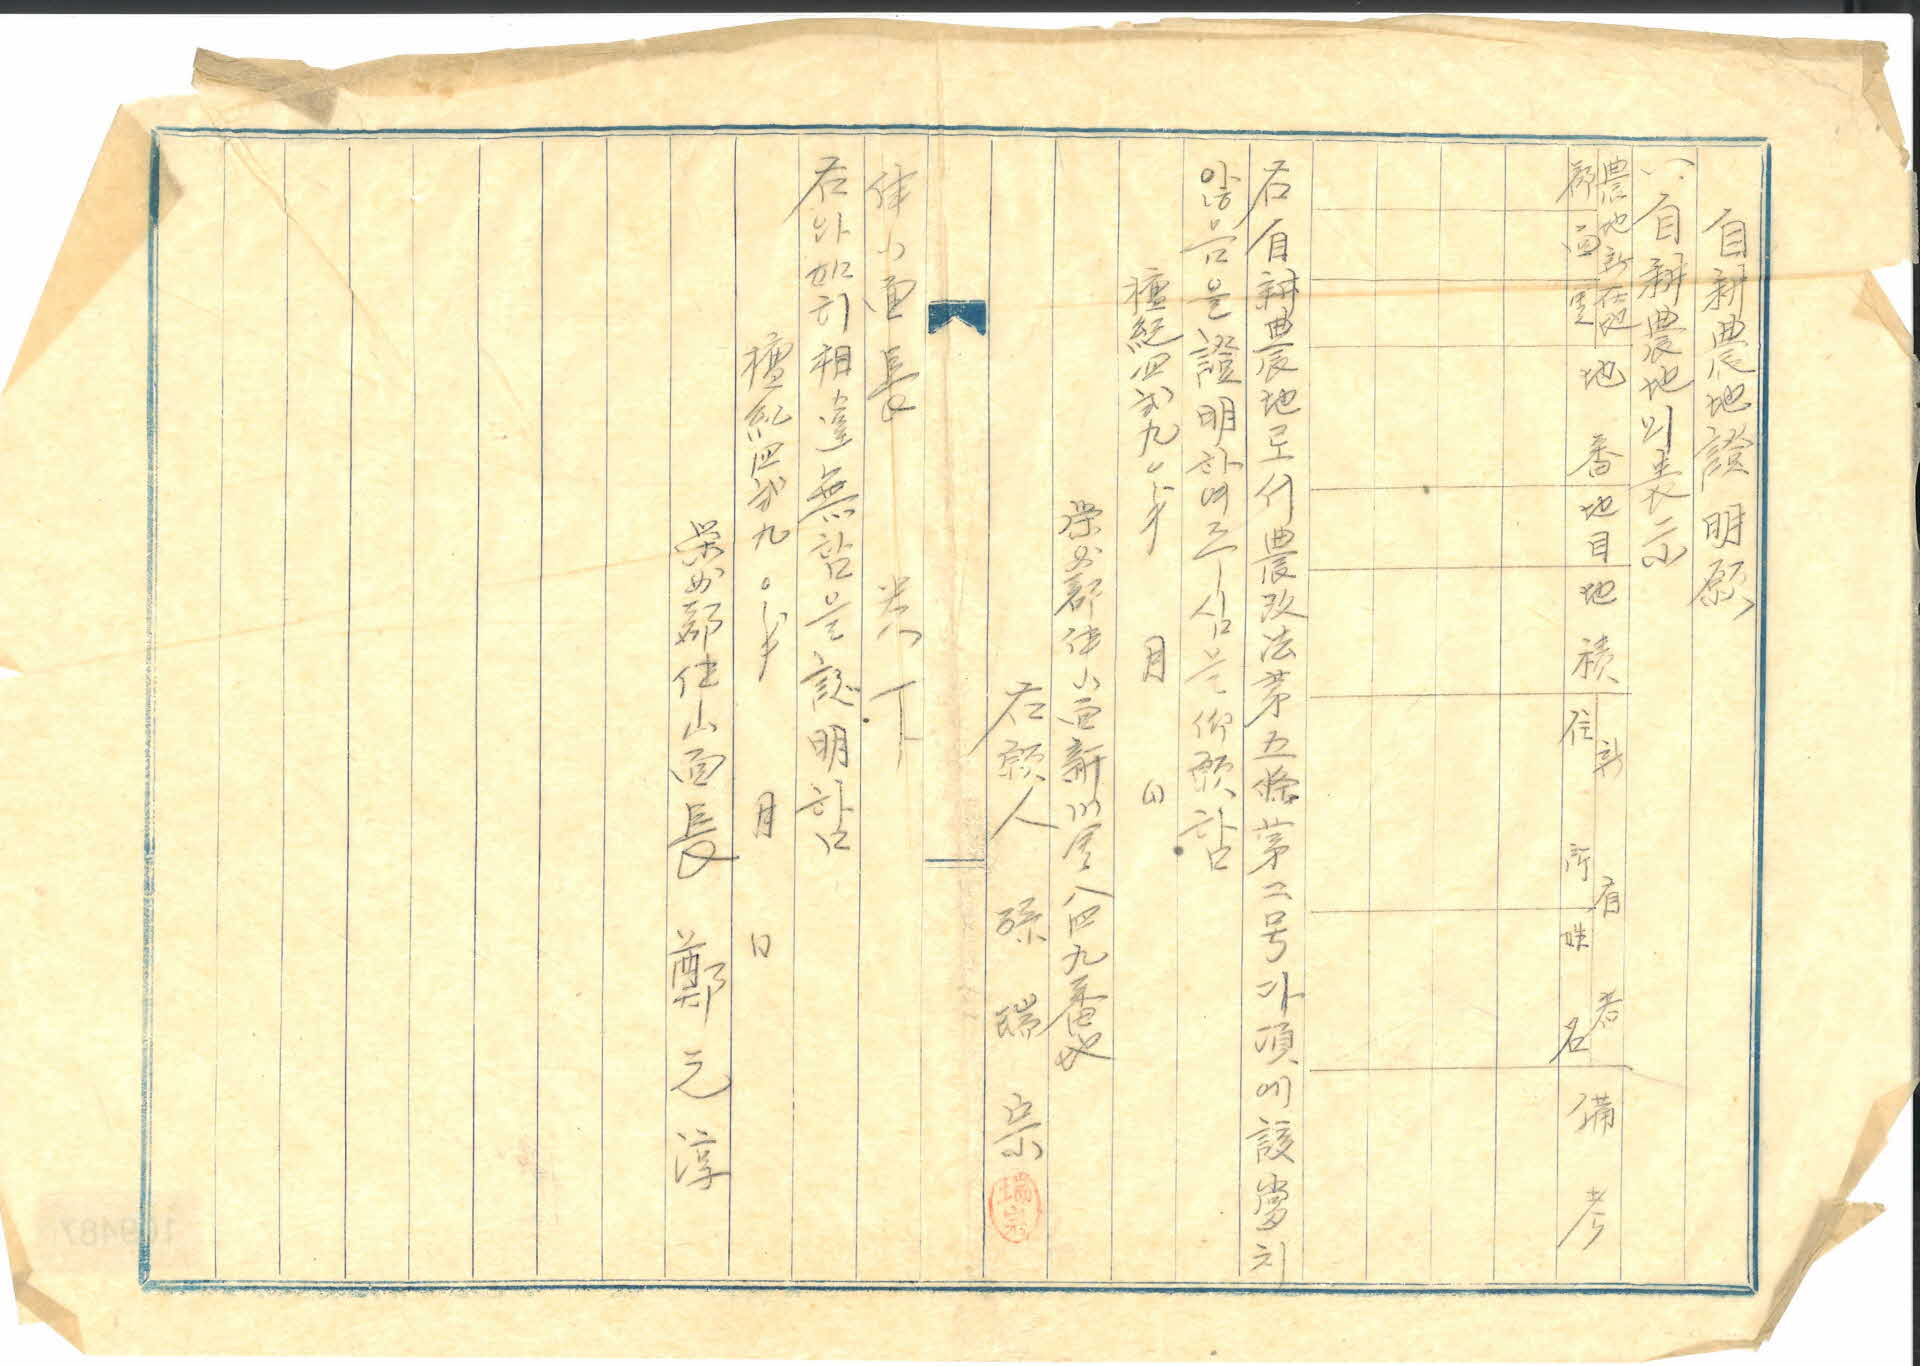 自耕農地證明願
一、自耕農地의表示
農地所在地
郡面里 地番 地目 地積 所有者 住所 姓名 備考
右自耕農地로서農改法第五條第二号가項에該當치
않음을證明하여주심을仰願함
檀紀四貳九〇年 月 日
榮州郡伊山面新川里八四九番地
右願人 孫瑞宗
瑞宗
伊山面長 貴下
右와如히相違無함을證明함
檀紀四貳九〇年 月 日
榮州郡伊山面長 鄭元淳
109487